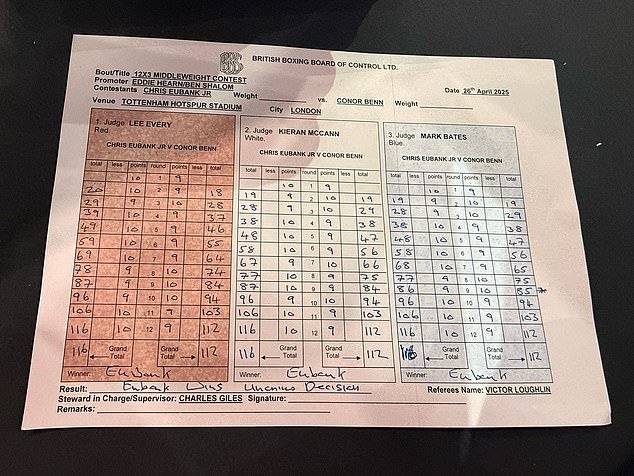 BRITISH BOXING BOARD OF CONTROL LTD.
Bout/Title 12X3 MIDDLEWEIGHT CONTEST
Promoter EDDIE HEARN/BEN SHALOM
Contestants CHRIS EUBANK JR Weight vs. CONOR BENN Weight
Date 26th April 2025
Venue TOTTENHAM HOTSPUR STADIUM City LONDON
1. Judge LEE EVERY
Red.
CHRIS EUBANK JR V CONOR BENN
total less points round points less total
10 1 9
20 10 2 9 18
29 9 3 10 28
39 10 4 9 37
49 10 5 9 46
59 10 6 9 55
69 10 7 9 64
78 9 8 10 74
87 9 9 10 84
96 9 10 10 94
106 10 11 9 103
116 10 12 9 112
116 Grand Total 112
Winner: Eubank
2. Judge KIERAN MCCANN
White.
CHRIS EUBANK JR V CONOR BENN
total less points round points less total
10 1 9
19 9 2 10 19
28 9 3 10 29
38 10 4 9 38
48 10 5 9 47
58 10 6 9 56
67 9 7 10 66
77 10 8 9 75
87 10 9 9 84
96 9 10 10 94
106 10 11 9 103
116 10 12 9 112
116 Grand Total 112
Winner: Eubank
3. Judge MARK BATES
Blue.
CHRIS EUBANK JR V CONOR BENN
total less points round points less total
10 1 9
19 9 2 10 19
28 9 3 10 29
38 10 4 9 38
48 10 5 9 47
58 10 6 9 56
68 10 7 9 65
77 9 8 10 75
86 9 9 10 85
96 10 10 9 94
106 10 11 9 103
116 10 12 9 112
116 Grand Total 112
Winner: Eubank
Result: Eubank Wins Unanious Decision
Referees Name: VICTOR LOUGHLIN
Steward in Charge/Supervisor: CHARLES GILES Signature:
Remarks: